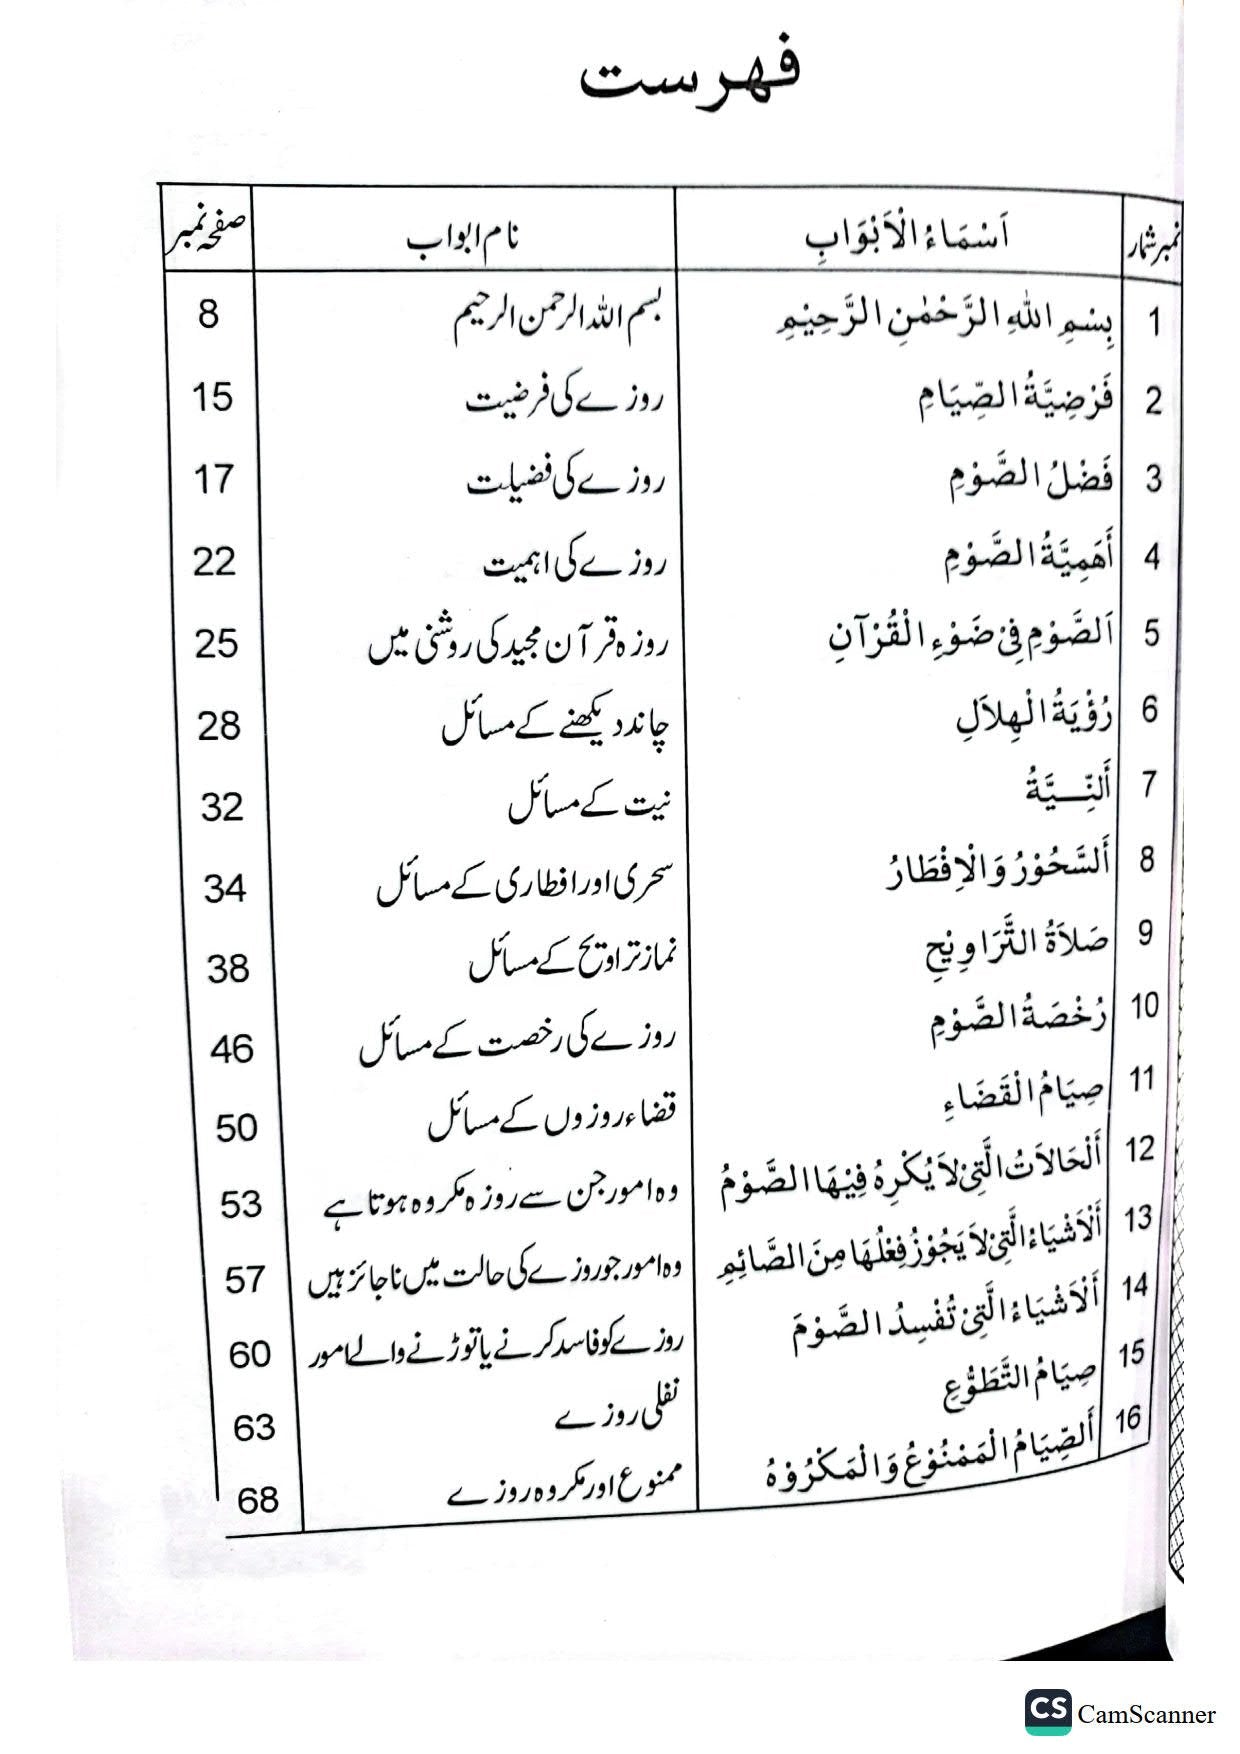 فہرست
نمبر شمار	اَسْمَاءُ الْاَبْوَابِ	نام ابواب	صفحہ نمبر
1	بِسْمِ اللّٰهِ الرَّحْمٰنِ الرَّحِيْمِ	بسم اللہ الرحمن الرحیم	8
2	فَرْضِيَّةُ الصِّيَامِ	روزے کی فرضیت	15
3	فَضْلُ الصَّوْمِ	روزے کی فضیلت	17
4	أَهَمِيَّةُ الصَّوْمِ	روزے کی اہمیت	22
5	اَلصَّوْمِ فِىْ ضَوْءِ الْقُرْآنِ	روزہ قرآن مجید کی روشنی میں	25
6	رُؤْيَةُ الْهِلاَلِ	چاند دیکھنے کے مسائل	28
7	أَلنِّـيَّةُ	نیت کے مسائل	32
8	أَلسَّحُوْرُ وَالْاِفْطَارُ	سحری اور افطاری کے مسائل	34
9	صَلاَةُ التَّرَاوِيْحِ	نماز تراویح کے مسائل	38
10	رُخْصَةُ الصَّوْمِ	روزے کی رخصت کے مسائل	46
11	صِيَامُ الْقَضَاءِ	قضاء روزوں کے مسائل	50
12	أَلْحَالاَتُ الَّتِىْ لاَ يُكْرِهُ فِيْهَا الصَّوْمُ	وہ امور جن سے روزہ مکروہ ہوتا ہے	53
13	أَلْاَشْيَاءُ الَّتِىْ لاَ يَجُوْزُ فِعْلُهَا مِنَ الصَّائِمِ	وہ امور جو روزے کی حالت میں ناجائز ہیں	57
14	أَلْاَشْيَاءُ الَّتِىْ تُفْسِدُ الصَّوْمَ	روزے کو فاسد کرنے یا توڑنے والے امور	60
15	صِيَامُ التَّطَوُّعِ	نفلی روزے	63
16	أَلصِّيَامُ الْمَمْنُوْعُ وَالْمَكْرُوْهُ	ممنوع اور مکروہ روزے	68
CS CamScanner